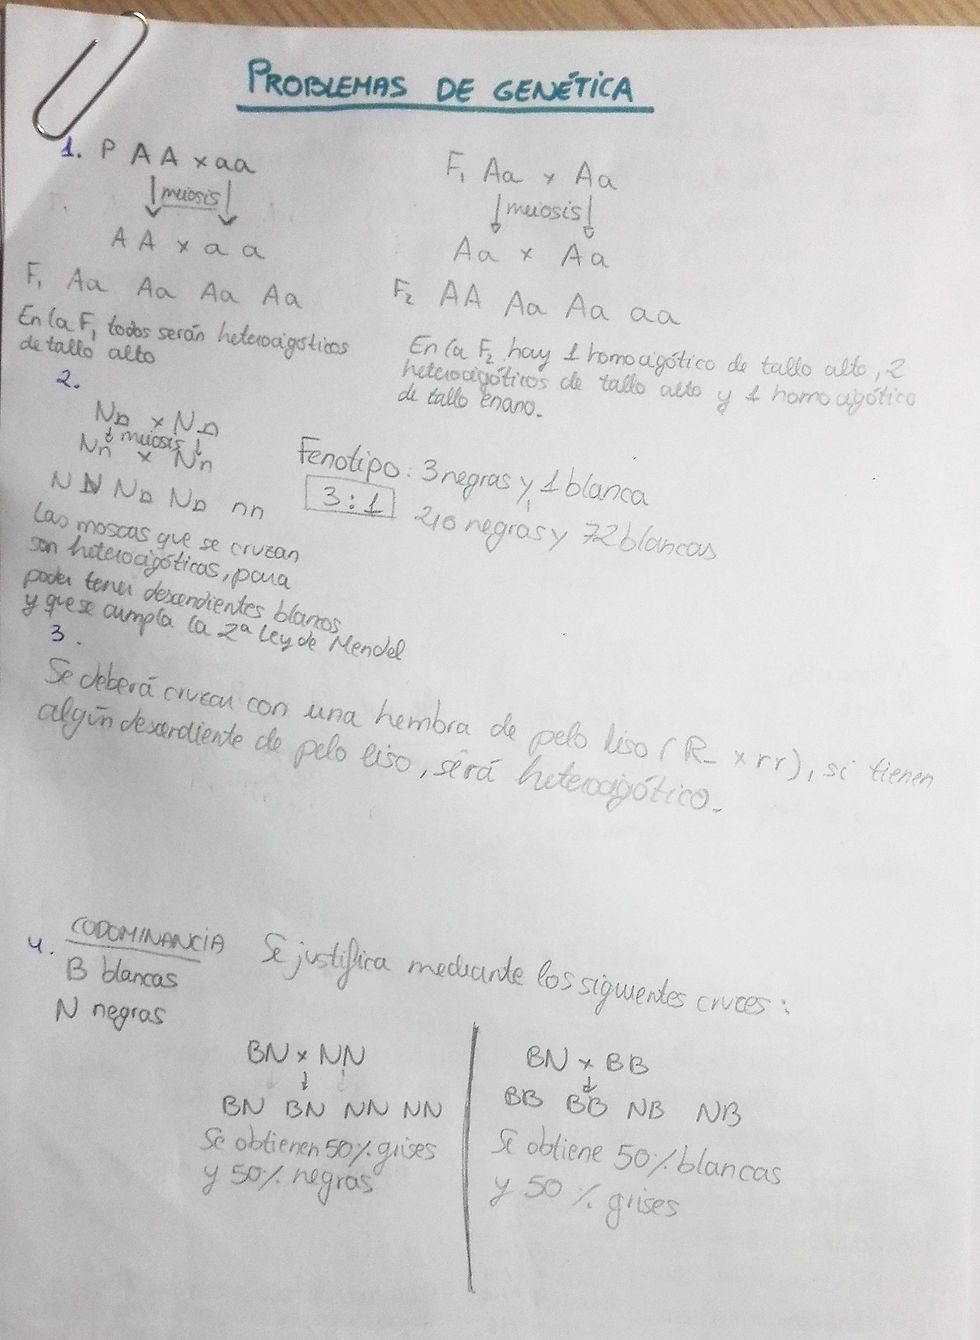 PROBLEMAS DE GENÉTICA
1. P AA x aa
meiosis
A A x a a
F1 Aa Aa Aa Aa
En la F1 todos serán heterocigóticos
de tallo alto
F1 Aa x Aa
meiosis
Aa x Aa
F2 AA Aa Aa aa
En la F2 hay 1 homocigótico de tallo alto, 2
heterocigóticos de tallo alto y 1 homocigótico
de tallo enano.
2.
Nn x Nn
meiosis
Nn x Nn
NN Nn Nn nn
Las moscas que se cruzan
son heterocigóticas, para
poder tener descendientes blancos
y que se cumpla la 2ª Ley de Mendel
Fenotipo: 3 negras y 1 blanca
3:1
210 negras y 72 blancas
3.
Se deberá cruzar con una hembra de pelo liso (R_ x rr), si tienen
algún descendiente de pelo liso, será heterocigótico.
4. CODOMINANCIA
B blancas
N negras
Se justifica mediante los siguientes cruces:
BN x NN
BN BN NN NN
Se obtienen 50% grises
y 50% negras
BN x BB
BB BB NB NB
Se obtiene 50% blancas
y 50% grises